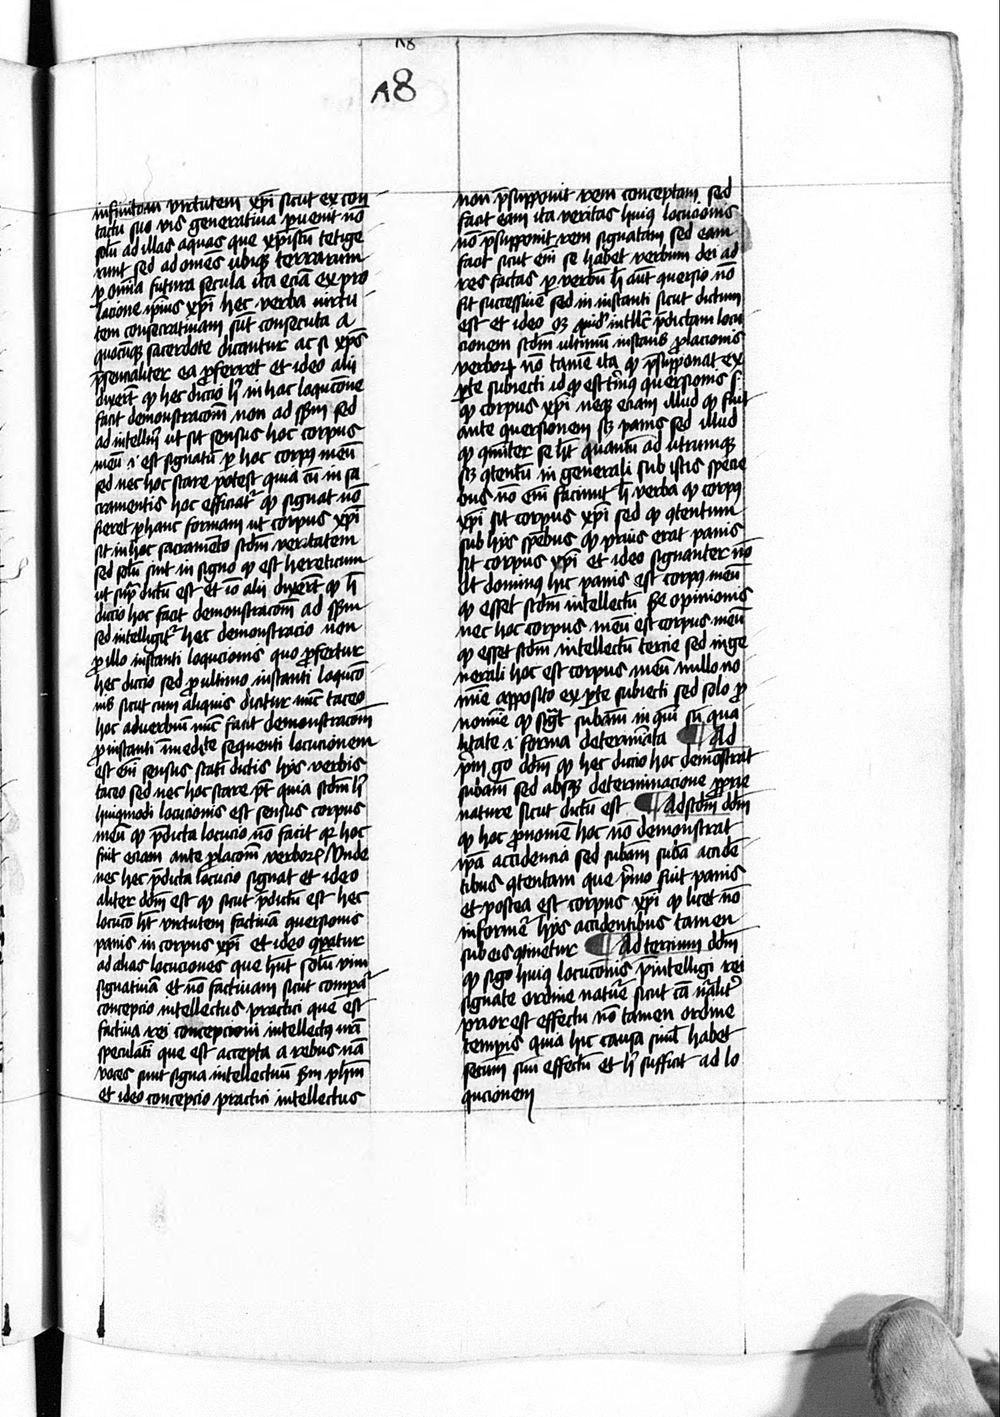 A8
A8
infinitam virtutem xp̄i sicut ex con
tactu suo vis generatiua puenit nō
solū ad illas aquas que xp̄istū tetige
runt sed ad om̄es ubiqꝫ terrarum
ꝑ om̄ia futura secula ita eciā ex pro
lacione ip̄ius xp̄i hec verba virtu
tem consecratiuam sūt consecuta a
quocūqꝫ sacerdote dicantur ac si xp̄s
p̄sencialiter ea ꝓferret et ideo alii
dixerūt ꝙ hec dictio h̄ in hac locucione
facit demonstracōem non ad sēsum sed
ad intellm̄ ut sit sensus hoc corpus
meū i est signatū ꝑ hoc corpus meū
sed nec hoc stare potest quia cū in sa
cramentis hoc efficiat᷑ ꝙ signat nō
fieret ꝑ hanc formam ut corpus xp̄i
sit in hoc sacramēto scdm̄ veritatem
sed solū sicut in signo ꝙ est hereticum
ut sup̄ dictū est et iō alii dixerūt ꝙ h̄
dictio hoc facit demonstracōem ad sēsum
sed intelligit᷑ hec demonstracio non
ꝓ illo instanti loqucionis quo ꝓfertur
hec diccio sed ꝓ ultimo instanti loqucō
nis sicut cum aliquis dicitur nūc taceo
hoc aduerbiū nūc facit demonstracōem
ꝓ instanti īmediate sequenti locucionem
est em̄ sensus statī dictis hijs verbis
taceo sed nec hoc stare pōt quia scdm̄ h̄
huiꝰmodi locucionis est sensus corpus
meū ꝙ p̄dicta locucio nō facit quia hoc
fuit eciam ante ꝓlacōem verborꝝ Vnde
nec hec p̄dicta locucio signat et ideo
aliter dd̄m est ꝙ sicut p̄dictū est hec
locucō hꝫ virtutem factiuā ꝯuersionis
panis in corpus xp̄i et ideo ꝯparatur
ad alias locuciones que hn̄t solū vim
signatiuā et nō factiuam sicut comparat᷑
concepcio intellectus practici que est
factiua rei concepcioni intellectus nr̄i
speculati que est accepta a rebus nā
voces sunt signa intellectuū scdm̄ ph̄m
et ideo concepcio practici intellectus
non p̄supponit rem conceptam sed
facit eam ita veritas huiꝰ locucionis
nō p̄supponit rem signatam sed eam
facit sicut em̄ se habet verbum dei ad
res factas ꝑ verbū h̄ aūt ꝯuersio nō
fit successiue sed in instanti sicut dictum
est et ideo oꝫ quidē intell̄e p̄dictam locu
cionem scdm̄ ultimū instans ꝓlacionis
verborꝝ nō tamē ita ꝙ p̄supponat ex
ꝑte subiecti id ꝙ est t̄minꝰ ꝯuersionis s
ꝙ corpus xp̄i neqꝫ eciam illud ꝙ fuit
ante ꝯuersionem sꝫ panis sed illud
ꝙ cōmūiter se hꝫ quantū ad utrumqꝫ
sꝫ ꝯtentū in generali sub istis specie
bus nō em̄ faciunt h̄ verba ꝙ corpꝰ
xp̄i sit corpus xp̄i sed ꝙ ꝯtentum
sub hijs spēbus ꝙ prius erat panis
sit corpus xp̄i et ideo signanter nō
dt dominus hic panis est corpꝰ meū
ꝙ esset scdm̄ intellectū se opinionis
nec hoc corpus meū est corpus meū
ꝙ esset scdm̄ intellectū tercie sed in ge
nerali hoc est corpus meū nullo no
mīe apposito ex ꝑte subiecti sed solo ꝓ
nomīe ꝙ signat subam̄ in cōi sū qua
litate i forma determīata ¶ Ad
pm̄ go dd̄m ꝙ hec dictio hoc demōstrat
subam̄ sed absqꝫ determinacione ꝓprie
nature sicut dictū est ¶ Ad scdm̄ dd̄m
ꝙ hoc ꝓnomē hoc nō demonstrat
ip̄a accidencia sed subam̄ sub accidē
tibus ꝯtentam que p̄mo fuit panis
et postea est corpus xp̄i ꝙ licet nō
informet᷑ hijs accidentibus tamen
sub eis ꝯtinetur ¶ Ad tercium dd̄m
ꝙ sigo huiꝰ locucōnis p̄intelligi rei
signate ordine nature sicut cā nāliter
prior est effectu nō tamen ordine
temporis quia hic causa simul habet
secum suū effectū et h̄ sufficit ad lo
qucionem